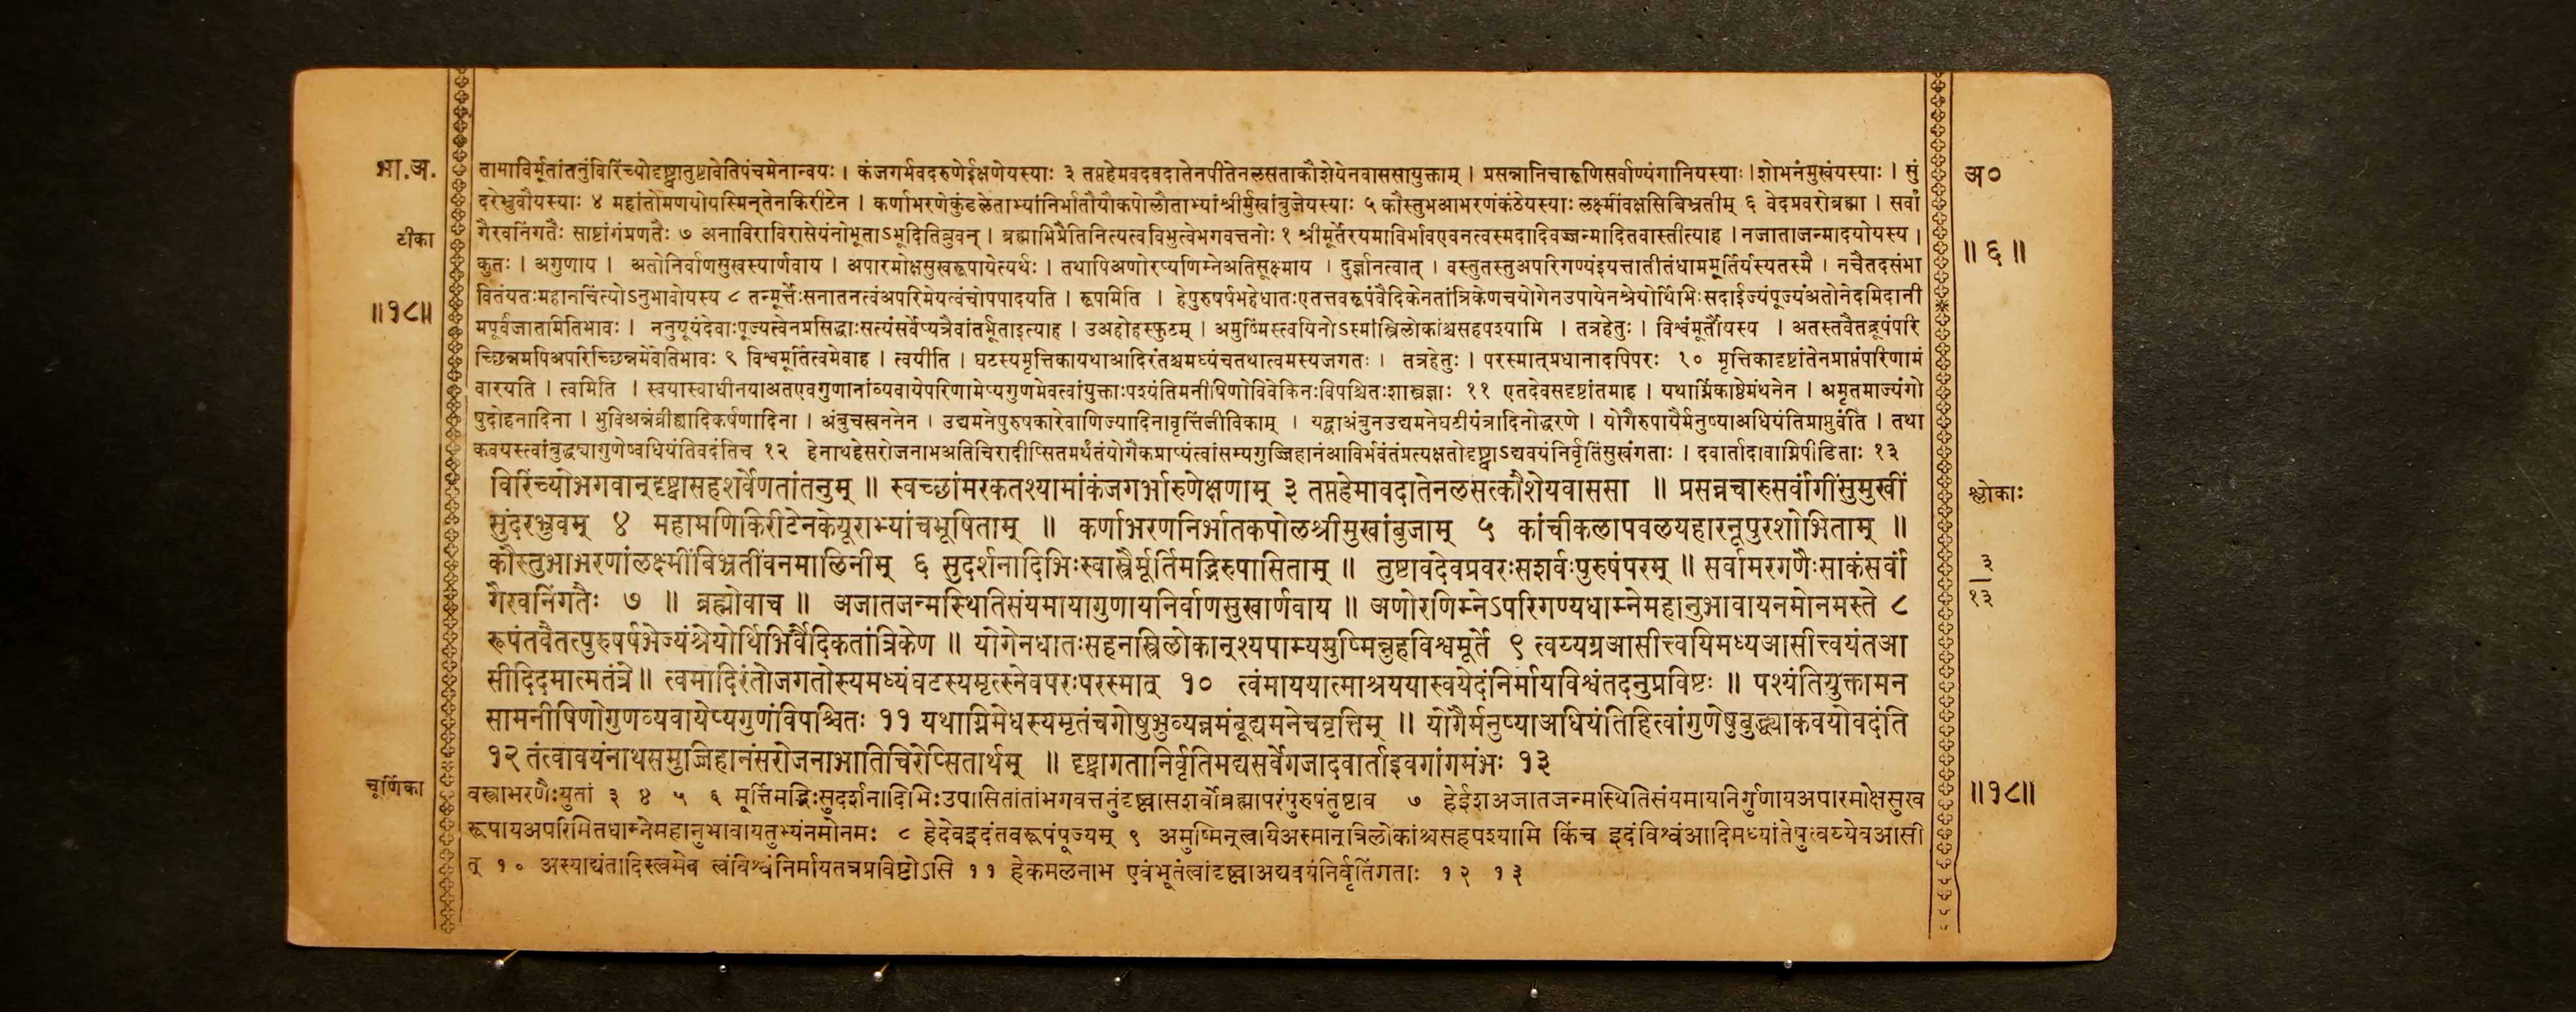 भा.अ.
टीका
॥१८॥
चूर्णिका
तामाविर्भूतांतनुंविरिंच्योदृष्ट्वातुष्टावेतिपंचमेनान्वयः । कंजगर्भवदरुणेईक्षणेयस्याः ३ तप्तहेमवदवदातेनपीतेनलसताकौशेयेनवाससायुक्ताम् । प्रसन्नानिचारूणिसर्वाण्यंगानियस्याः । शोभनंमुखंयस्याः । सुं
दरेभ्रुवौयस्याः ४ महांतोमणयोयस्मिन्तेनकिरीटेन । कर्णाभरणेकुंडलेताभ्यांनिर्भातौयौकपोलौताभ्यांश्रीर्मुखांबुजेयस्याः ५ कौस्तुभआभरणंकंठेयस्याः लक्ष्मींवक्षसिबिभ्रतीम् ६ वेदप्रवरोब्रह्मा । सर्वां
गैरवनिंगतैः साष्टांगंप्रणतैः ७ अनाविराविरासेयंनोभूताऽभूदितिब्रुवन् । ब्रह्माभिप्रैतिनित्यत्वविभुत्वेभगवत्तनोः १ श्रीमूर्तेरयमाविर्भावएवनत्वस्मदादिवज्जन्मादितवास्तीत्याह । नजाताजन्मादयोयस्य ।
कुतः । अगुणाय । अतोनिर्वाणसुखस्यार्णवाय । अपारमोक्षसुखरूपायेत्यर्थः । तथापिअणोरप्यणिम्नेअतिसूक्ष्माय । दुर्ज्ञानत्वात् । वस्तुतस्तुअपरिगण्यंइयत्तातीतंधाममूर्तिर्यस्यतस्मै । नचैतदसंभा
वितंयतःमहानचिंत्योऽनुभावोयस्य ८ तन्मूर्त्तेःसनातनत्वंअपरिमेयत्वंचोपपादयति । रूपमिति । हेपुरुषर्षभहेधातःएतत्तवरूपंवैदिकेनतांत्रिकेणचयोगेनउपायेनश्रेयोर्थिभिःसदाईज्यंपूज्यंअतोनेदमिदानी
मपूर्वजातामितिभावः । ननुयूयंदेवाःपूज्यत्वेनप्रसिद्धाःसत्यंसर्वेप्यत्रैवांतर्भूताइत्याह । उअहोहस्फुटम् । अमुष्मिंस्त्वयिनोऽस्मांस्त्रिलोकांश्चसहपश्यामि । तत्रहेतुः । विश्वंमूर्तौयस्य । अतस्तवैतद्रूपंपरि
च्छिन्नमपिअपरिच्छिन्नमेवेतिभावः ९ विश्वमूर्तित्वमेवाह । त्वयीति । घटस्यमृत्तिकायथाआदिरंतश्चमध्यंचतथात्वमस्यजगतः । तत्रहेतुः । परस्मात्प्रधानादपिपरः १० मृत्तिकादृष्टांतेनप्राप्तंपरिणामं
वारयति । त्वमिति । स्वयास्वाधीनयाअतएवगुणानांव्यवायेपरिणामेप्यगुणमेवत्वांयुक्ताःपश्यंतिमनीषिणोविवेकिनःविपश्चितःशास्त्रज्ञाः ११ एतदेवसदृष्टांतमाह । यथाग्निंकाष्ठेमंथनेन । अमृतमाज्यंगो
षुदोहनादिना । भुविअन्नंव्रीह्यादिकर्षणादिना । अंबुचखननेन । उद्यमनेपुरुषकारेवाणिज्यादिनावृत्तिंजीविकाम् । यद्वाअंबुनउद्यमनेघटीयंत्रादिनोद्धरणे । योगैरुपायैर्मनुष्याअधियंतिप्राप्नुवंति । तथा
कवयस्त्वांबुद्ध्यागुणेष्वधियंतिवदंतिच १२ हेनाथहेसरोजनाभअतिचिरादीप्सितमर्थंतंयोगैकप्राप्यंत्वांसम्यगुज्जिहानंआविर्भवंतंप्रत्यक्षतोदृष्ट्वाऽद्यवयंनिर्वृतिंसुखंगताः । दवार्तादावाग्निपीडिताः १३
विरिंच्योभगवान्दृष्ट्वासहशर्वेणतांतनुम् ॥ स्वच्छांमरकतश्यामांकंजगर्भारुणेक्षणाम् ३ तप्तहेमावदातेनलसत्कौशेयवाससा ॥ प्रसन्नचारुसर्वांगींसुमुखीं
सुंदरभ्रुवम् ४ महामणिकिरीटेनकेयूराभ्यांचभूषिताम् ॥ कर्णाभरणनिर्भातकपोलश्रीमुखांबुजाम् ५ कांचीकलापवलयहारनूपुरशोभिताम् ॥
कौस्तुभाभरणांलक्ष्मींबिभ्रतींवनमालिनीम् ६ सुदर्शनादिभिःस्वास्त्रैर्मूर्तिमद्भिरुपासिताम् ॥ तुष्टावदेवप्रवरःसशर्वःपुरुषंपरम् ॥ सर्वामरगणैःसाकंसर्वां
गैरवनिंगतैः ७ ॥ ब्रह्मोवाच ॥ अजातजन्मस्थितिसंयमायागुणायनिर्वाणसुखार्णवाय ॥ अणोरणिम्नेऽपरिगण्यधाम्नेमहानुभावायनमोनमस्ते ८
रूपंतवैतत्पुरुषर्षभेज्यंश्रेयोर्थिभिर्वैदिकतांत्रिकेण ॥ योगेनधातःसहनस्त्रिलोकान्श्यपाम्यमुष्मिन्नुहविश्वमूर्ते ९ त्वय्यग्रआसीत्त्वयिमध्यआसीत्त्वयंतआ
सीदिदमात्मतंत्रे॥ त्वमादिरंतोजगतोस्यमध्यंघटस्यमृत्स्नेवपरःपरस्मात् १० त्वंमाययात्माश्रययास्वयेदंनिर्मायविश्वंतदनुप्रविष्टः ॥ पश्यंतियुक्तामन
सामनीषिणोगुणव्यवायेप्यगुणंविपश्चितः ११ यथाग्निमेधस्यमृतंचगोषुभुव्यन्नमंबूद्यमनेचवृत्तिम् ॥ योगैर्मनुष्याअधियंतिहित्वांगुणेषुबुद्ध्याकवयोवदंति
१२ तंत्वावयंनाथसमुज्जिहानंसरोजनाभातिचिरेप्सितार्थम् ॥ दृष्ट्वागतानिर्वृतिमद्यसर्वेगजादवार्ताइवगांगमंभः १३
वस्त्राभरणैःयुतां ३ ४ ५ ६ मूर्त्तिमद्भिःसुदर्शनादिभिःउपासितांतांभगवत्तनुंदृष्ट्वासशर्वोब्रह्मापरंपुरुषंतुष्टाव ७ हेईशअजातजन्मास्थितिसंयमायनिर्गुणायअपारमोक्षसुख
रूपायअपरिमितधाम्नेमहानुभावायतुभ्यंनमोनमः ८ हेदेवइदंतवरूपंपूज्यम् ९ अमुष्मिन्त्वयिअस्मान्त्रिलोकांश्चसहपश्यामि किंच इदंविश्वंआदिमध्यांतेषुत्वय्येवआसी
त् १० अस्याद्यंतादिस्त्वमेव त्वंविश्वंनिर्मायतत्रप्रविष्टोऽसि ११ हेकमलनाभ एवंभूतंत्वांदृष्ट्वाअद्यवयंनिर्वृतिंगताः १२ १३
अ०
॥६॥
श्लोकाः
३
१३
॥१८॥